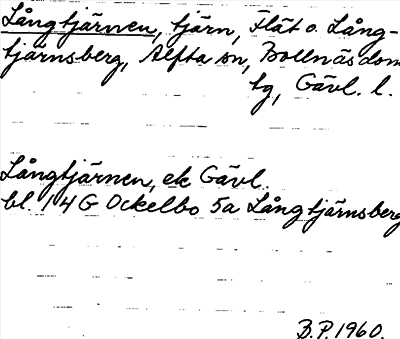 Långtjärnen, tjärn, Flät o. Lång-
tjärnsberg, Alfta sn, Bollnäs dom
tg, Gävl. l.
Långtjärnen, ek Gävl.
bl. 14G Ockelbo 5a Långtjärnsberg
B.P. 1960.